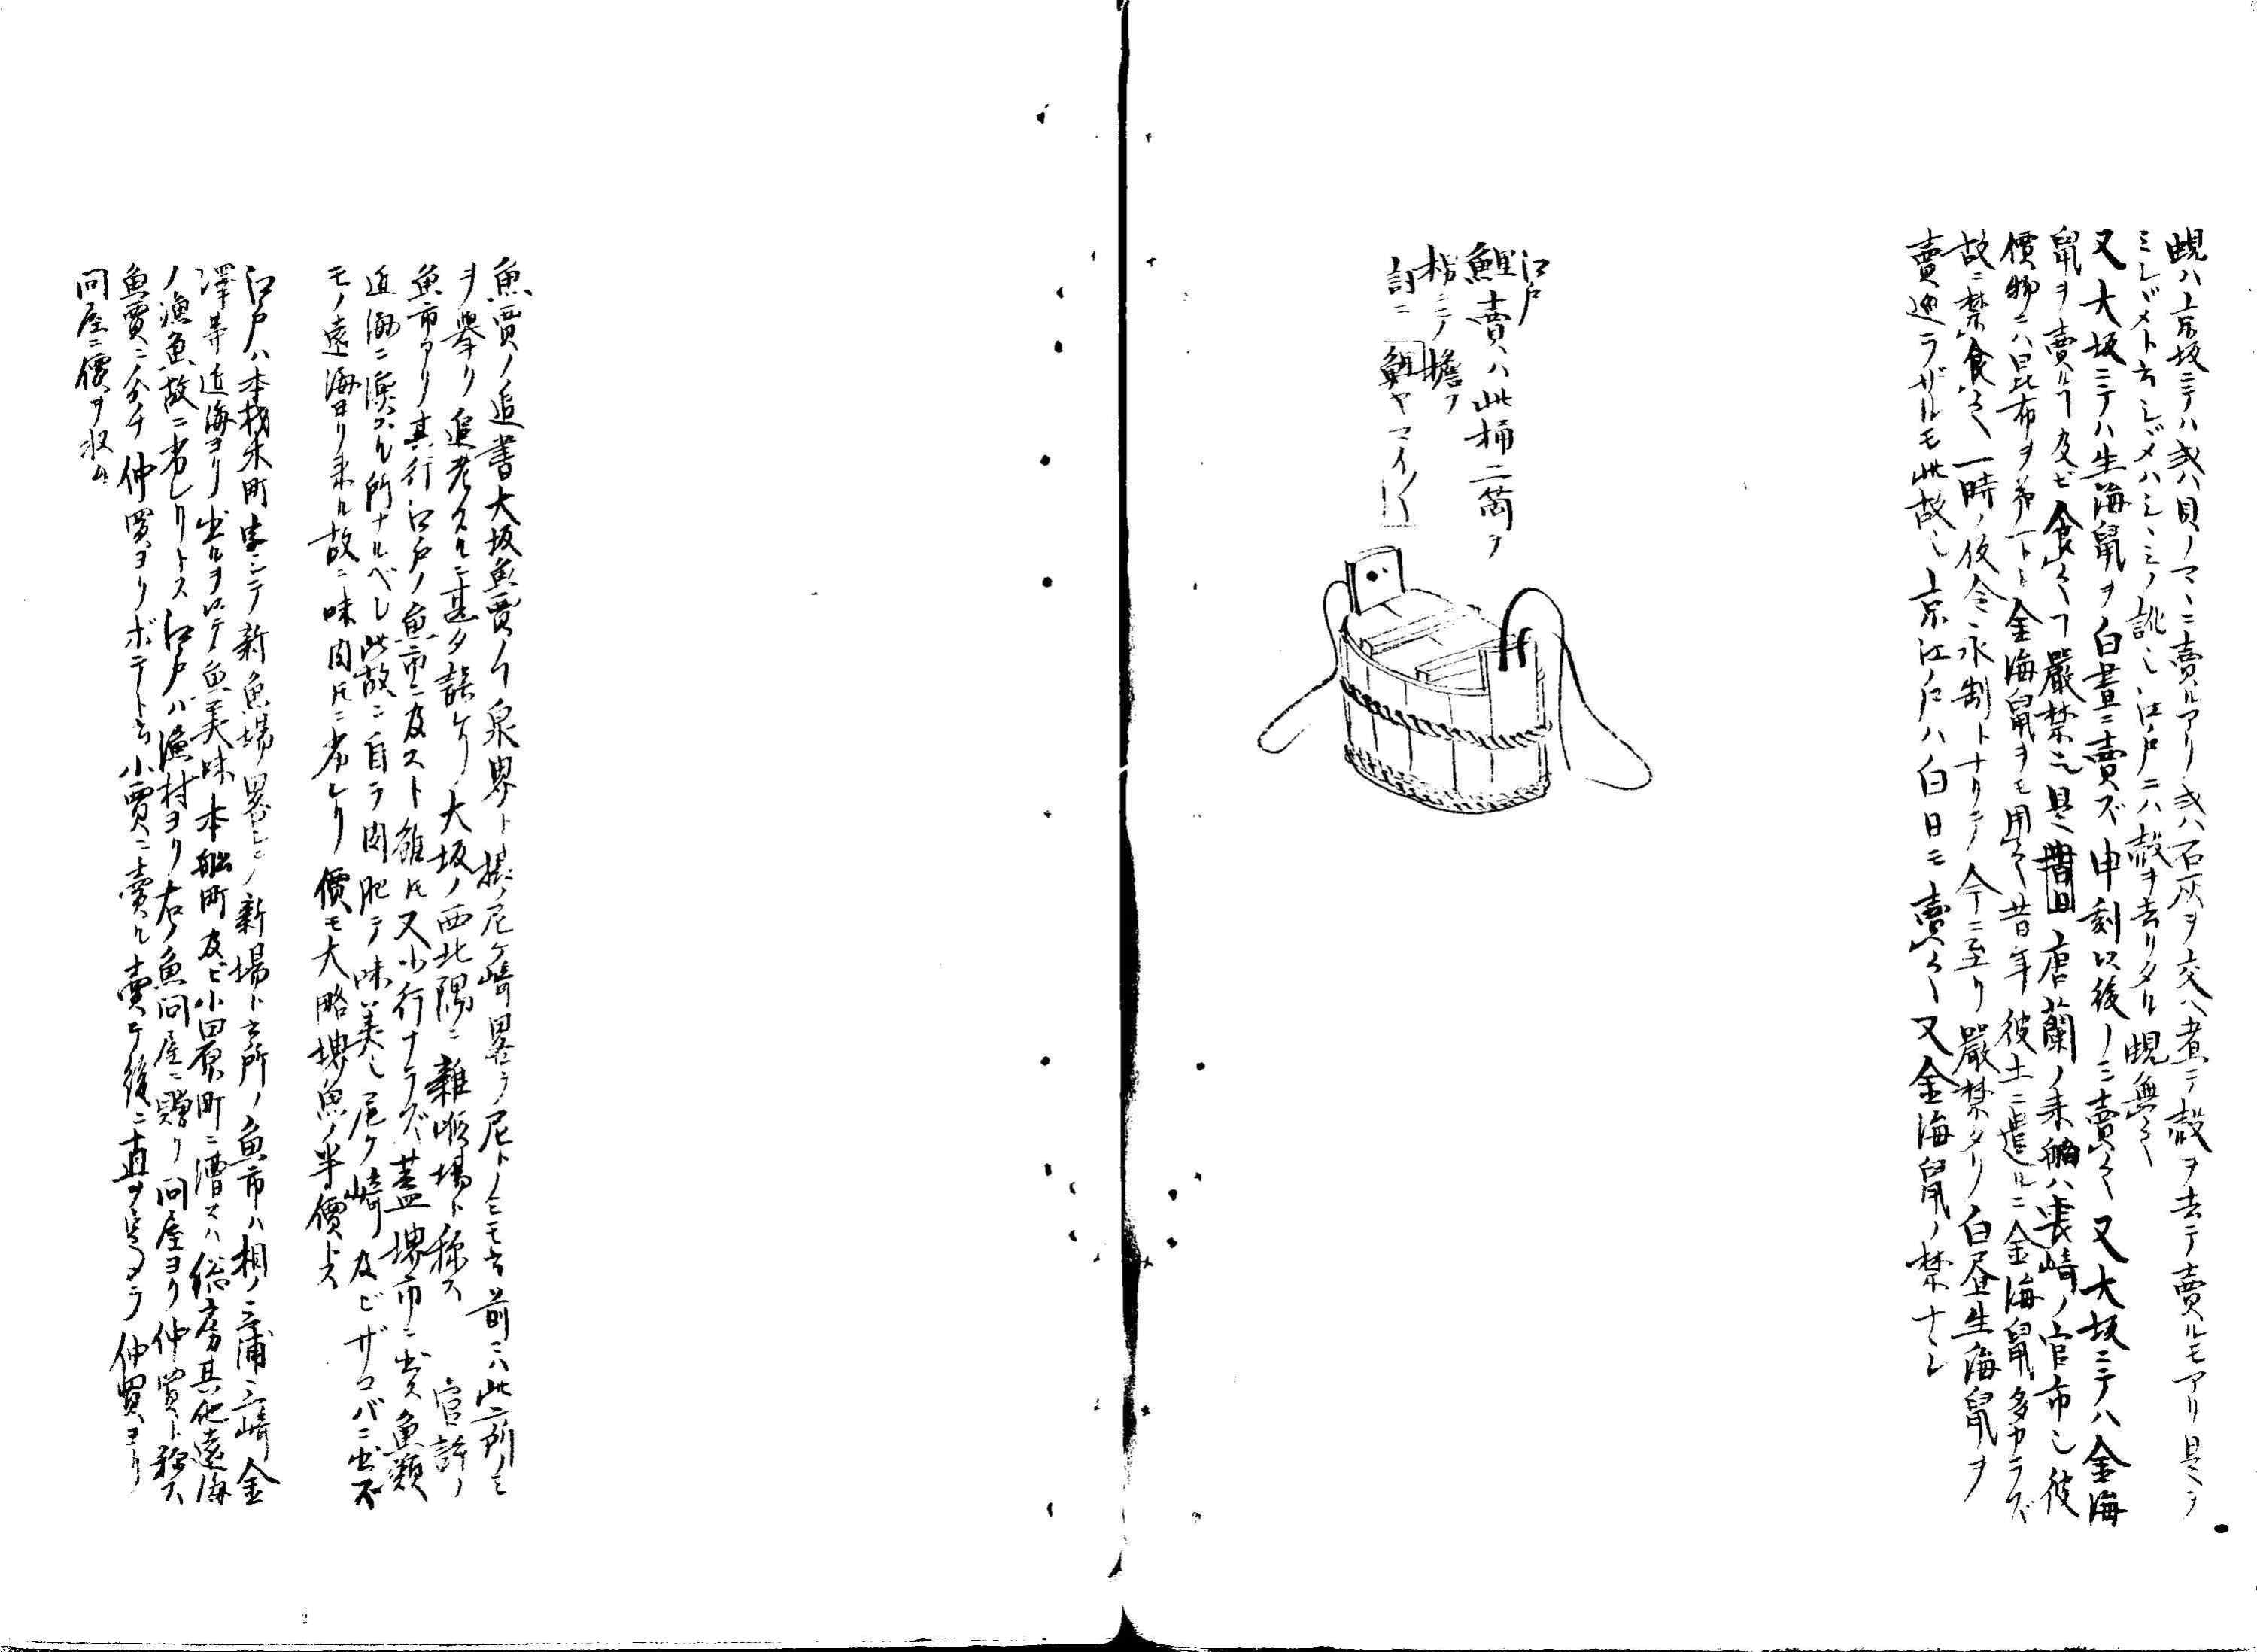 蜆ハ京坂ニテハ或ハ貝ノマヽニ賣ルアリ或ハ石灰ヲ交ヘ煮テ殻ヲ去テ賣ルモアリ是ヲ
シヾメト云シヾメハシヽミノ訛也江戸ニハ殻ヲ去リタル蜆無之
又大坂ニテハ生海鼠ヲ白晝ニ賣ズ申刻以後ノミ賣之又大坂ニテハ金海
鼠ヲ賣ルヿ及ビ食之ヿ嚴禁也是唐蘭ノ来舶ハ長崎ノ官市也彼
價物ニハ昆布ヲ第一トシ金海鼠ヲモ用之昔年彼土ニ遣ルニ金海鼠多カラズ
故ニ禁食之一時ノ仮令永制トナリテ今ニ至リ嚴禁タリ白昼生海鼠ヲ
賣巡ラザルモ此故也京江戸ハ白日モ賣之又金海鼠ノ禁ナシ
江戸
鯉賣ハ此桶二箇ヲ
枴ニテ擔フ
詞ニ鯉ヤマイ〱
魚賈ノ追書大坂魚賈ノヿ泉界ト摂ノ尼ケ崎畧シテ尼トノミモ云前ニハ此二所ノミ
ヲ擧リ追考スルニ甚タ誤ケリ大坂ノ西北隅ニ雜喉場ト称ス官許ノ
魚市アリ其行江戸ノ魚市ニ及ズト雖𪜈又小行ナラズ蓋堺市ニ出ス魚類
近海ニ漁スル所ナルベシ此故ニ自ラ肉肥テ味美也尼ケ崎及ビザコバニ出ス
モノ遠海ヨリ来ル故ニ味肉𪜈ニ劣レリ價モ大略堺魚ノ半價トス
江戸ハ本材木町ニテ新魚場畧シテ新場ト云所ノ魚市ハ相ノ三浦三崎金
澤等近海ヨリ出ルヲ以テ魚美味本舩町及ビ小田原町ニ漕スハ総房其他遠海
ノ漁魚故ニ劣レリトス江戸ハ漁村ヨリ右ノ魚問屋ニ贈リ問屋ヨリ仲買ト称ス
魚賈ニ分チ仲買ヨリボテト云小賈ニ賣ル賣テ後ニ直ヲ定メ仲買ヨリ
問屋ニ價ヲ収ム